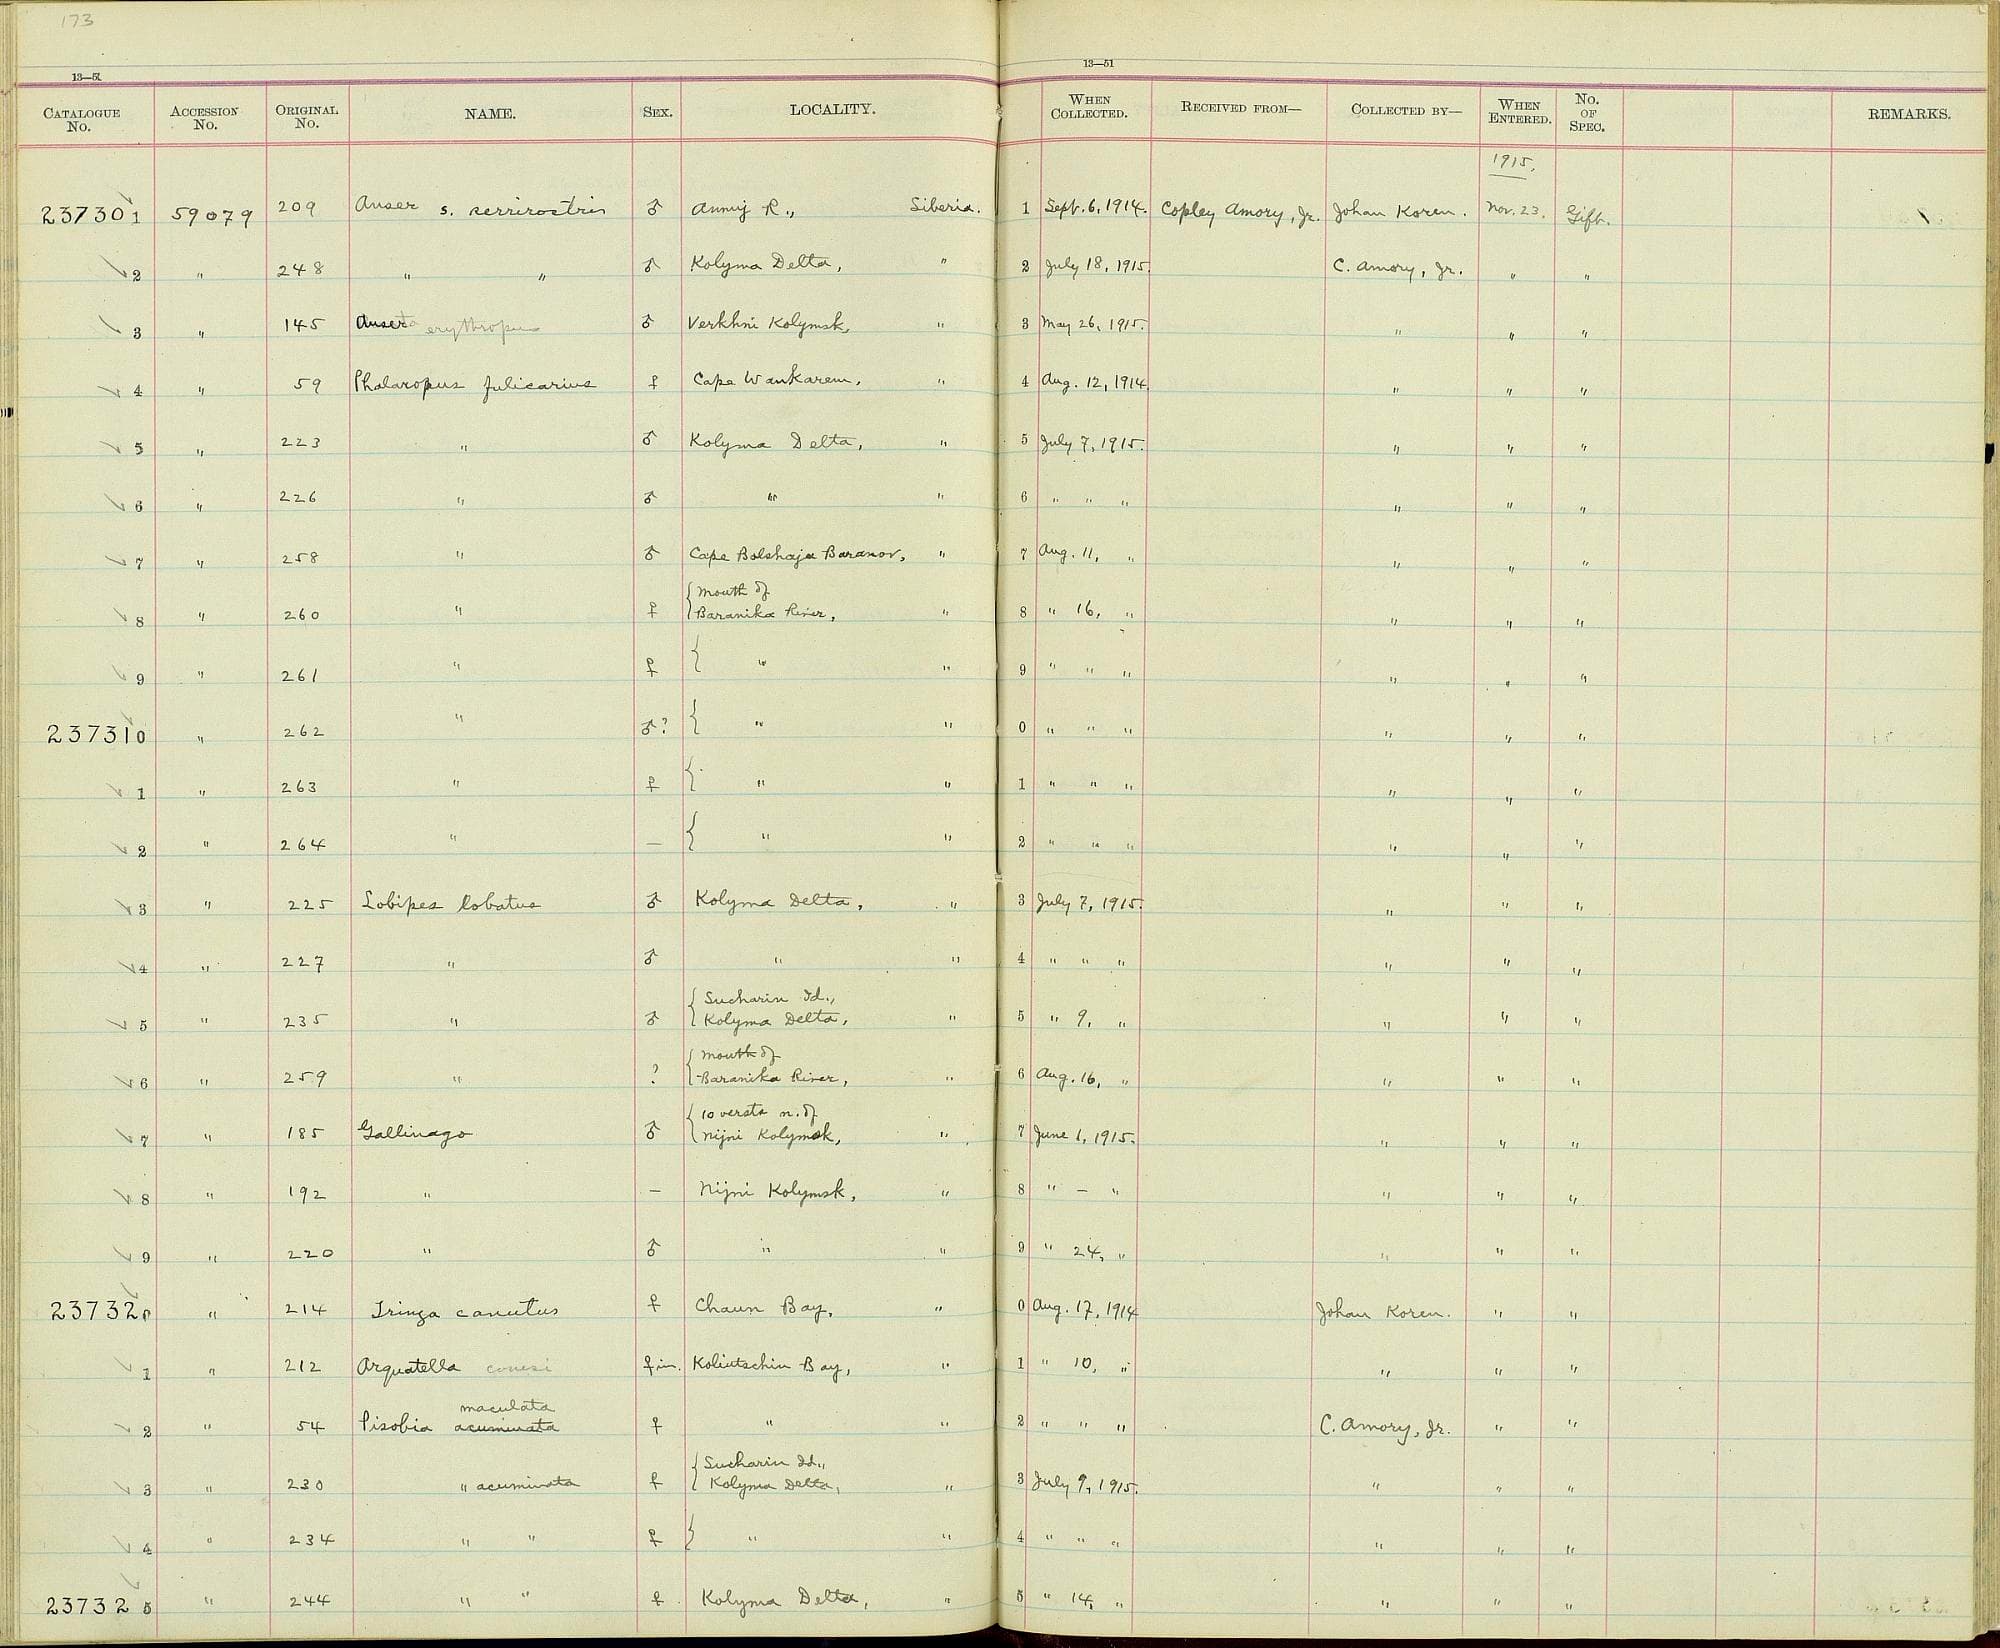 173
13—51 13—51
CATALOGUE No. ACCESSION No. ORIGINAL No. NAME. SEX. LOCALITY. WHEN COLLECTED. RECEIVED FROM— COLLECTED BY— WHEN ENTERED. No. OF SPEC. REMARKS.
1915.
237301 59079 209 Anser s. serrirostris ♂ Annuj R., Siberia. 1 Sept. 6, 1914. Copley Amory, Jr. Johan Koren. Nov. 23. Gift.
2 " 248 " " ♂ Kolyma Delta, " 2 July 18, 1915. C. Amory, Jr. " "
3 " 145 Anser erythropus ♂ Verkhni Kolymsk, " 3 May 26, 1915. " " "
4 " 59 Phalaropus fulicarius ♀ Cape Wankarem, " 4 Aug. 12, 1914. " " "
5 " 223 " ♂ Kolyma Delta, " 5 July 7, 1915. " " "
6 " 226 " ♂ " " 6 " " " " " "
7 " 258 " ♂ Cape Bolshaja Baranov, " 7 Aug. 11, " " " "
8 " 260 " ♀ { Mouth of
Baranika River, " 8 " 16, " " " "
9 " 261 " ♀ { " " 9 " " " " " "
237310 " 262 " ♂? { " " 0 " " " " " "
1 " 263 " ♀ { " " 1 " " " " " "
2 " 264 " — { " " 2 " " " " " "
3 " 225 Lobipes lobatus ♂ Kolyma Delta, " 3 July 7, 1915. " " "
4 " 227 " ♂ " " 4 " " " " " "
5 " 235 " ♂ { Sucharin Id.,
Kolyma Delta, " 5 " 9, " " " "
6 " 259 " ? { Mouth of
Baranika River, " 6 Aug. 16, " " " "
7 " 185 Gallinago ♂ { 10 versts n. of
Nijni Kolymsk, " 7 June 1, 1915. " " "
8 " 192 " — Nijni Kolymsk, " 8 " — " " " "
9 " 220 " ♂ " " 9 " 24, " " " "
237320 " 214 Tringa canutus ♀ Chaun Bay, " 0 Aug. 17, 1914 Johan Koren. " "
1 " 212 Arquatella couesi ♀ im. Koliutschin Bay, " 1 " 10, " " " "
maculata
2 " 54 Pisobia acuminata ♀ " " 2 " " " C. Amory, Jr. " "
3 " 230 " acuminata ♀ { Sucharin Id.,
Kolyma Delta, " 3 July 9, 1915. " " "
4 " 234 " " ♀ } " " 4 " " " " " "
237325 " 244 " " ♀ Kolyma Delta, " 5 " 14, " " " "